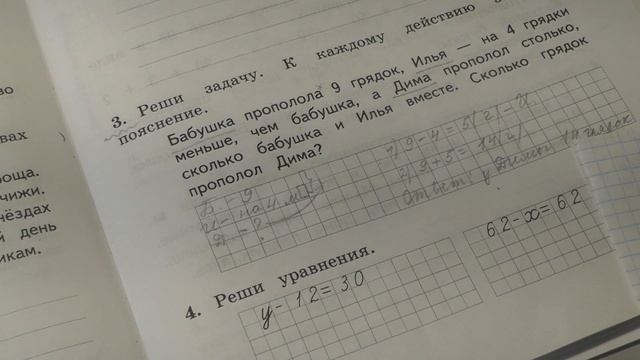 во
вах
оща.
чижи.
нёздах
й день
икам.
3. Реши задачу. К каждому действию
пояснение.
Бабушка прополола 9 грядок, Илья — на 4 грядки
меньше, чем бабушка, а Дима прополол столько,
сколько бабушка и Илья вместе. Сколько грядок
прополол Дима?
Б - 9
И - на 4 м.
Д - ?
1) 9 - 4 = 5(г) - И.
2) 9 + 5 = 14(г)
Ответ: у Димы 14 грядок
4. Реши уравнения.
у - 12 = 30
62 - х = 62